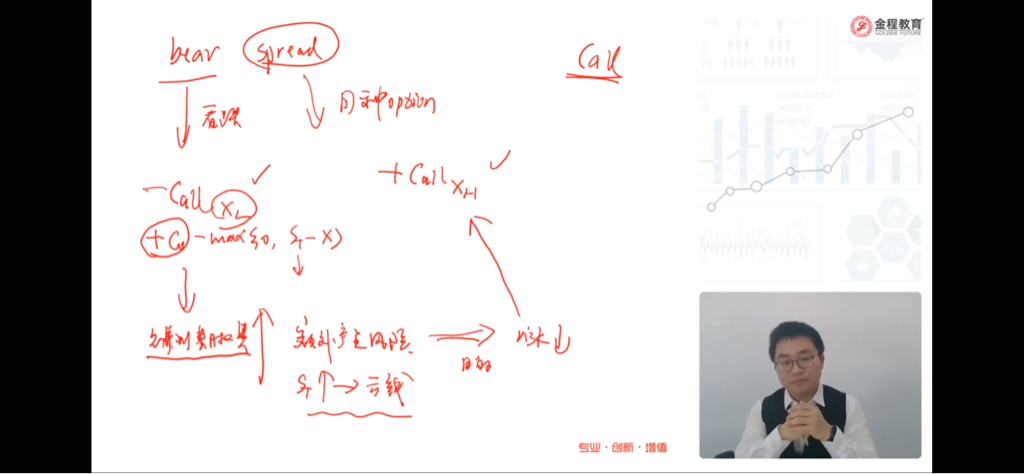 bear spread
Call
看跌
同种option
-Call XL
+Call XH
+C0 - max{0, ST-X}
额外产生风险
risk↓
目的
ST↑→亏钱
金程教育
GOLDEN FUTURE
专业·创新·增值